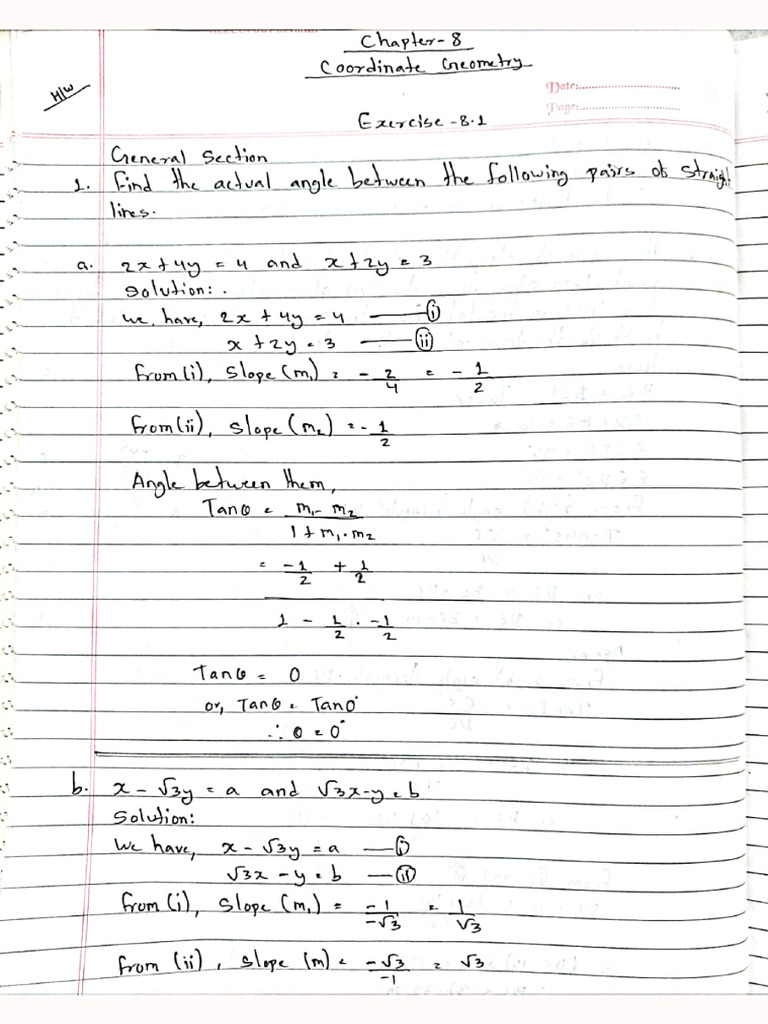 Chapter-8
Coordinate Geometry
H/W
Date:
Page:
Exercise-8.1
General Section
1. Find the actual angle between the following pairs of straight
lines.
a. 2x+4y=4 and x+2y=3
Solution:.
We have, 2x+4y=4 —— (i)
x+2y=3 —— (ii)
From(i), Slope(m₁) = -2/4 = -1/2
From(ii), Slope(m₂) = -1/2
Angle between them,
Tanθ = (m₁-m₂)/(1+m₁.m₂)
= (-1/2 + 1/2)/(1 - 1/2 . -1/2)
Tanθ = 0
or, Tanθ = Tan0°
∴ θ = 0°
b. x-√3y=a and √3x-y=b
Solution:
We have, x-√3y=a —(i)
√3x-y=b —(ii)
From(i), Slope(m₁) = -1/-√3 = 1/√3
From (ii), Slope (m) = -√3/-1 = √3